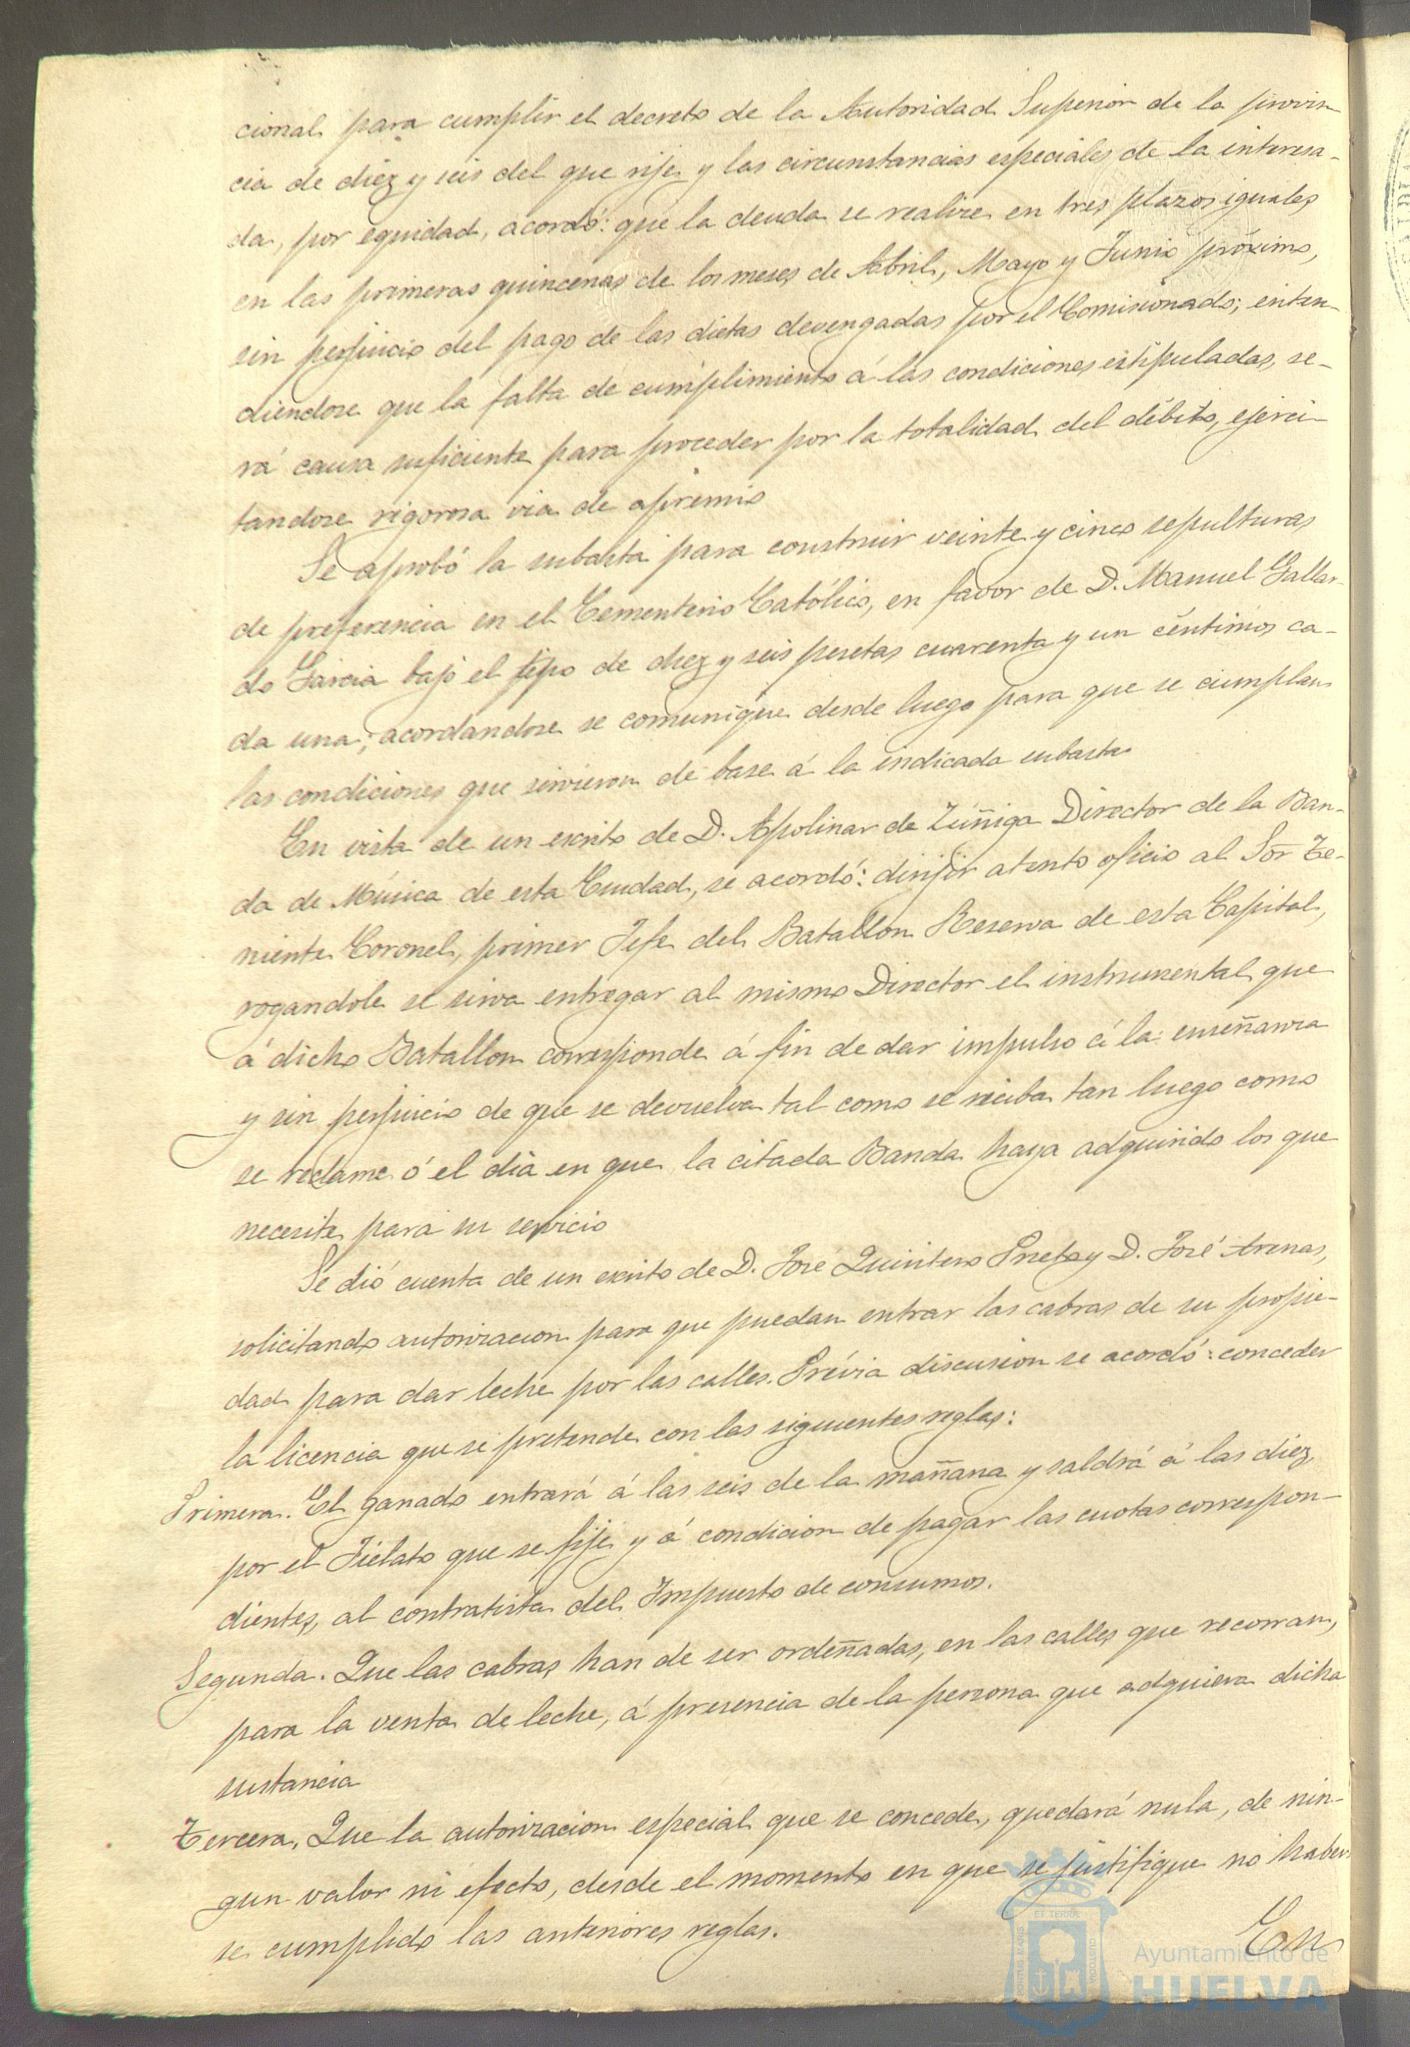 cional para cumplir el decreto de la Autoridad Superior de la provin-
cia de diez y seis del que rije y las circunstancias especiales de la interesa-
da, por equidad, acordó: que la deuda se realize en tres plazos iguales
en las primeras quincenas de los meses de Abril, Mayo y Junio próximo,
sin perjuicio del pago de las dietas devengadas por el Comisionado; enten-
diendose que la falta de cumplimiento á las condiciones estipuladas, se-
rá causa suficiente para proceder por la totalidad del débito, ejerci-
tandose rigorosa via de apremio
Se aprobó la subasta para construir veinte y cinco sepulturas
de preferencia en el Cementerio Católico, en favor de D. Manuel Gallar-
do Garcia bajo el tipo de diez y seis pesetas cuarenta y un céntimos ca-
da una; acordandose se comunique desde luego para que se cumplan
las condiciones que sirvieron de base á la indicada subasta
En vista de un escrito de D. Apolinar de Zúñiga Director de la Ban-
da de Música de esta Ciudad, se acordó: dirijir atento oficio al Sor Te-
niente Coronel, primer Jefe del Batallon Reserva de esta Capital,
rogandole se sirva entregar al mismo Director el instrumental que
á dicho Batallon corresponde á fin de dar impulso á la enseñanza
y sin perjuicio de que se devuelva tal como se reciba tan luego como
se reclame ó el dia en que la citada Banda haya adquirido los que
necesite para su servicio
Se dió cuenta de un escrito de D. José Quintero Prieto y D. José Arenas,
solicitando autorizacion para que puedan entrar las cabras de su propie-
dad para dar leche por las calles. Prévia discusion se acordó: conceder
la licencia que se pretende con las siguientes reglas:
Primera. El ganado entrará á las seis de la mañana y saldrá á las diez,
por el Fielato que se fije y á condicion de pagar las cuotas correspon-
dientes, al contratista del Impuesto de consumos.
Segunda. Que las cabras han de ser ordeñadas, en las calles que recorran,
para la venta de leche, á presencia de la persona que adquiera dicha
sustancia
Tercera. Que la autorizacion especial que se concede, quedará nula, de nin-
gun valor ni efecto, desde el momento en que se justifique no haber
se cumplido las anteriores reglas.
En
Ayuntamiento de
HUELVA